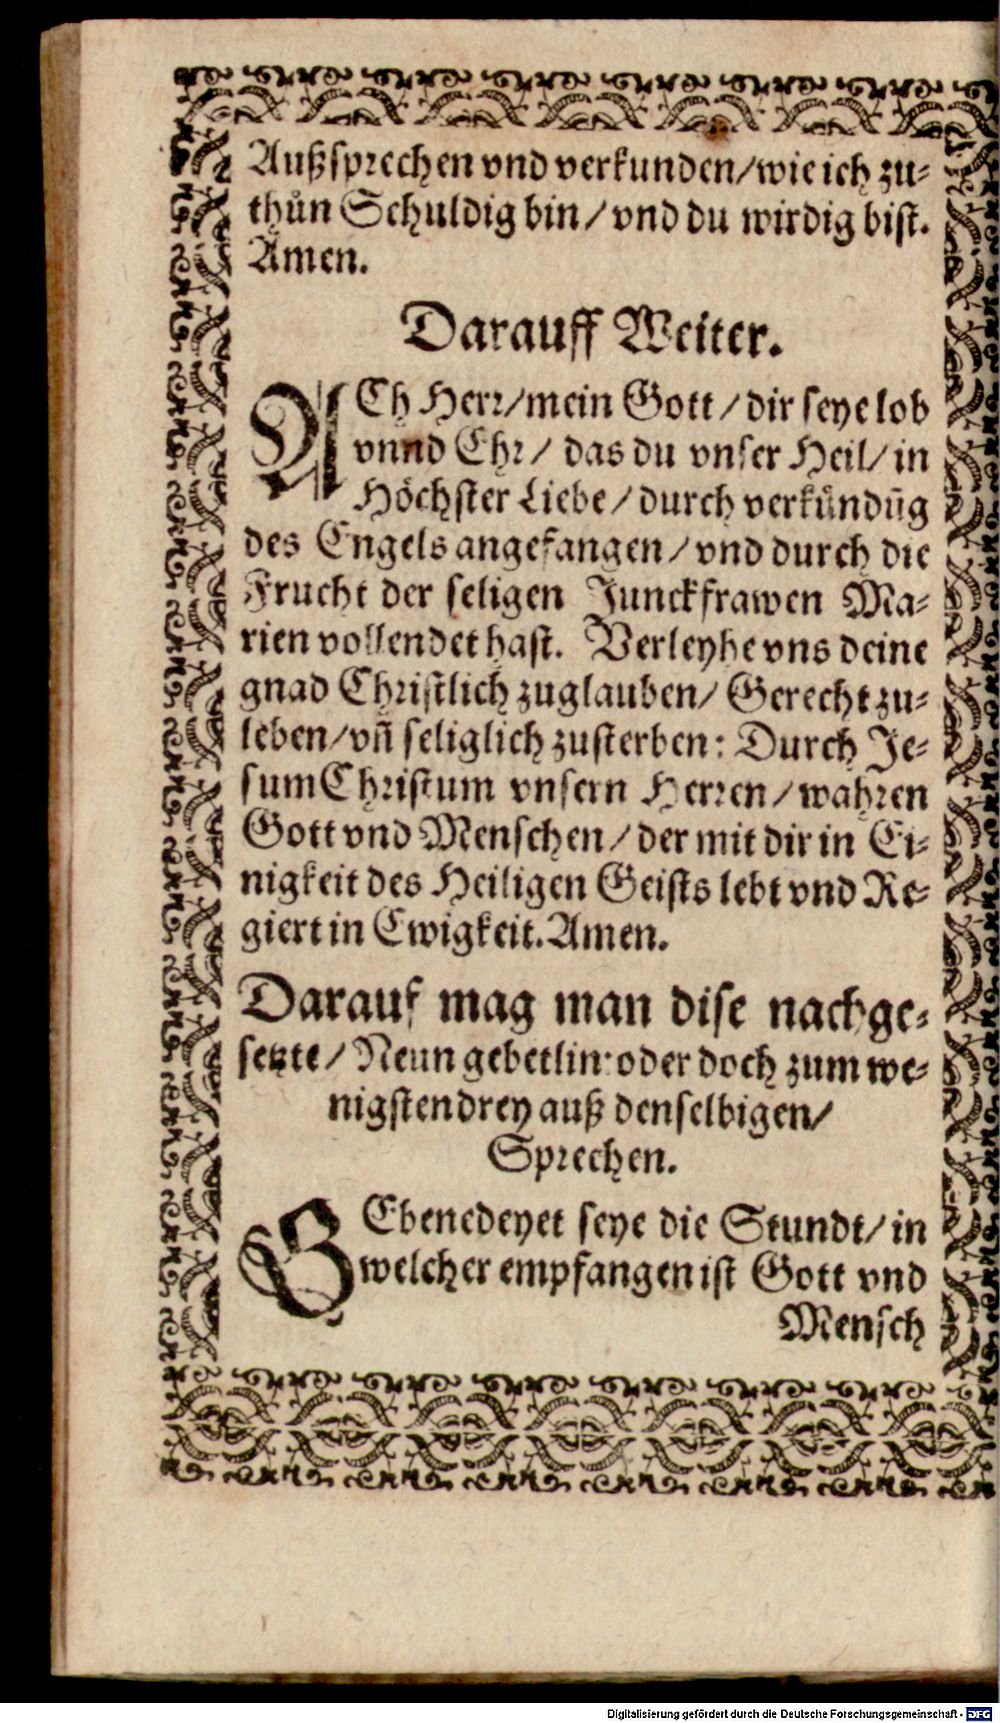 Außsprechen vnd verkunden/wie ich zu-
thůn Schuldig bin/ vnd du wirdig bist.
Amen.
Darauff Weiter.
ACh Herr/mein Gott/ dir seye lob
vnnd Ehr/ das du vnser Heil/ in
Höchster Liebe/ durch verkündūg
des Engels angefangen/ vnd durch die
Frucht der seligen Junckfrawen Ma-
rien vollendet hast. Verleyhe vns deine
gnad Christlich zuglauben/ Gerecht zu-
leben/vn̄ seliglich zusterben: Durch Je-
sum Christum vnsern Herren/ wahren
Gott vnd Menschen/ der mit dir in Ei-
nigkeit des Heiligen Geists lebt vnd Re-
giert in Ewigkeit. Amen.
Darauf mag man dise nachge-
setzte/ Neun gebetlin: oder doch zum we-
nigsten drey auß denselbigen/
Sprechen.
GEbenedeyet seye die Stundt/ in
welcher empfangen ist Gott vnd
Mensch
Digitalisierung gefördert durch die Deutsche Forschungsgemeinschaft - DFG